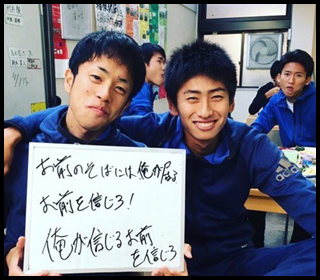 お前のそばには俺が居る
お前を信じろ!
俺が信じるお前
を信じろ